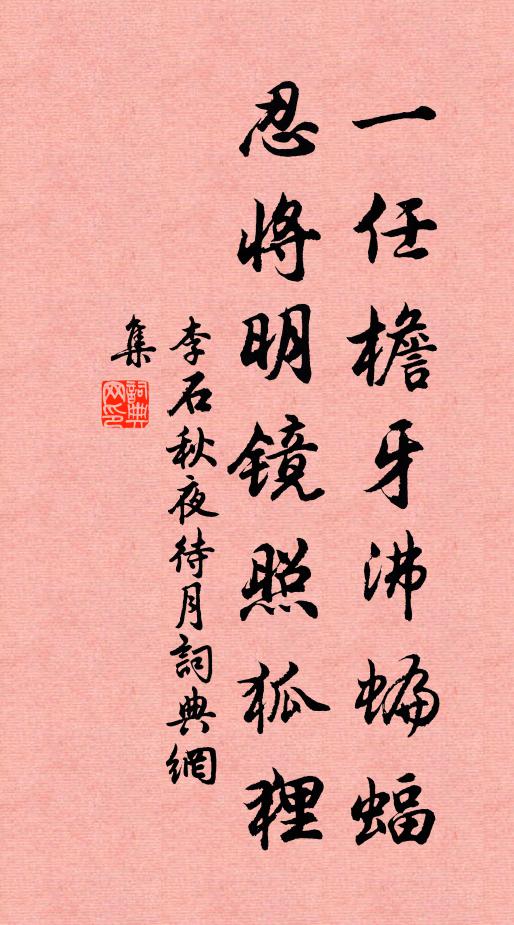 一任檐牙沸蝙蝠
忍將明鏡照狐狸
李石秋夜待月詞典網
集
詞典網印